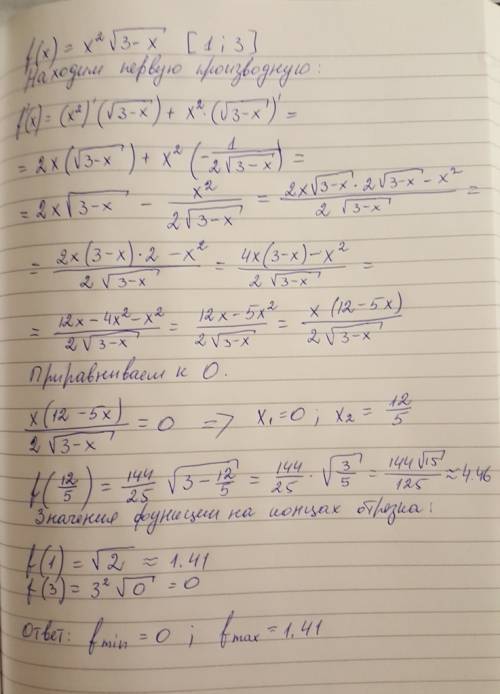 f(x) = x² √(3-x)   [1; 3]
Находим первую производную:
f'(x) = (x²)'(√(3-x)) + x²·(√(3-x))' =
= 2x(√(3-x)) + x²(-1/(2√(3-x))) =
= 2x√(3-x) - x²/(2√(3-x)) = (2x√(3-x) · 2√(3-x) - x²)/(2√(3-x)) =
= (2x(3-x)·2 - x²)/(2√(3-x)) = (4x(3-x) - x²)/(2√(3-x)) =
= (12x - 4x² - x²)/(2√(3-x)) = (12x - 5x²)/(2√(3-x)) = x(12-5x)/(2√(3-x))
Приравниваем к 0.
x(12-5x)/(2√(3-x)) = 0 => x₁=0; x₂ = 12/5
f(12/5) = 144/25 √(3 - 12/5) = 144/25 · √(3/5) = 144√15/125 ≈ 4.46
Значения функции на концах отрезка:
f(1) = √2 ≈ 1.41
f(3) = 3²√0 = 0
Ответ: fmin = 0; fmax = 1.41